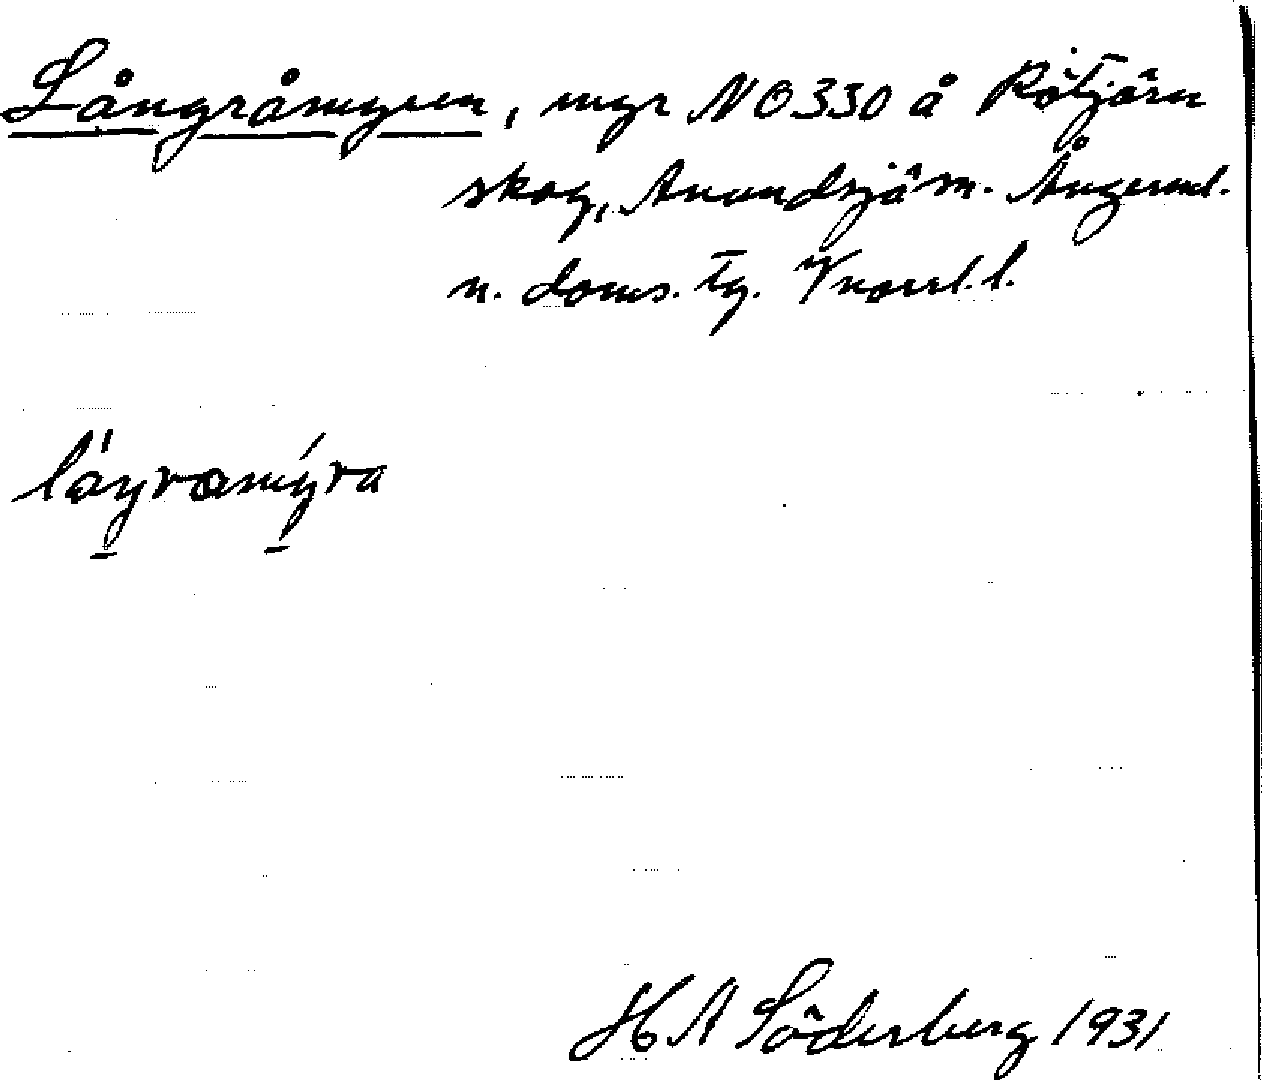 Långråmyren, myr NO 330 å Rötjärn
skog, Anundsjö sn. Ångerml.
n. doms. tg. V norrl. l.
låŋråmy̆ra
H A Söderberg 1931